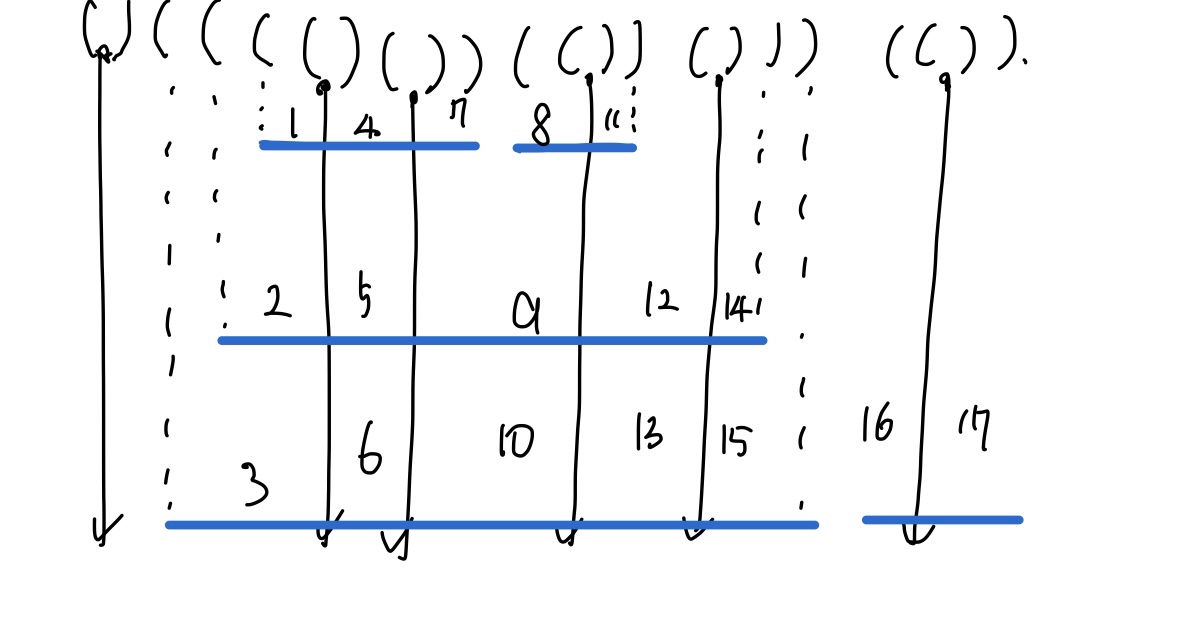 ()(((()())(())()))(()).
1 4 7 8 11
2 5 9 12 14
3 6 10 13 15 16 17